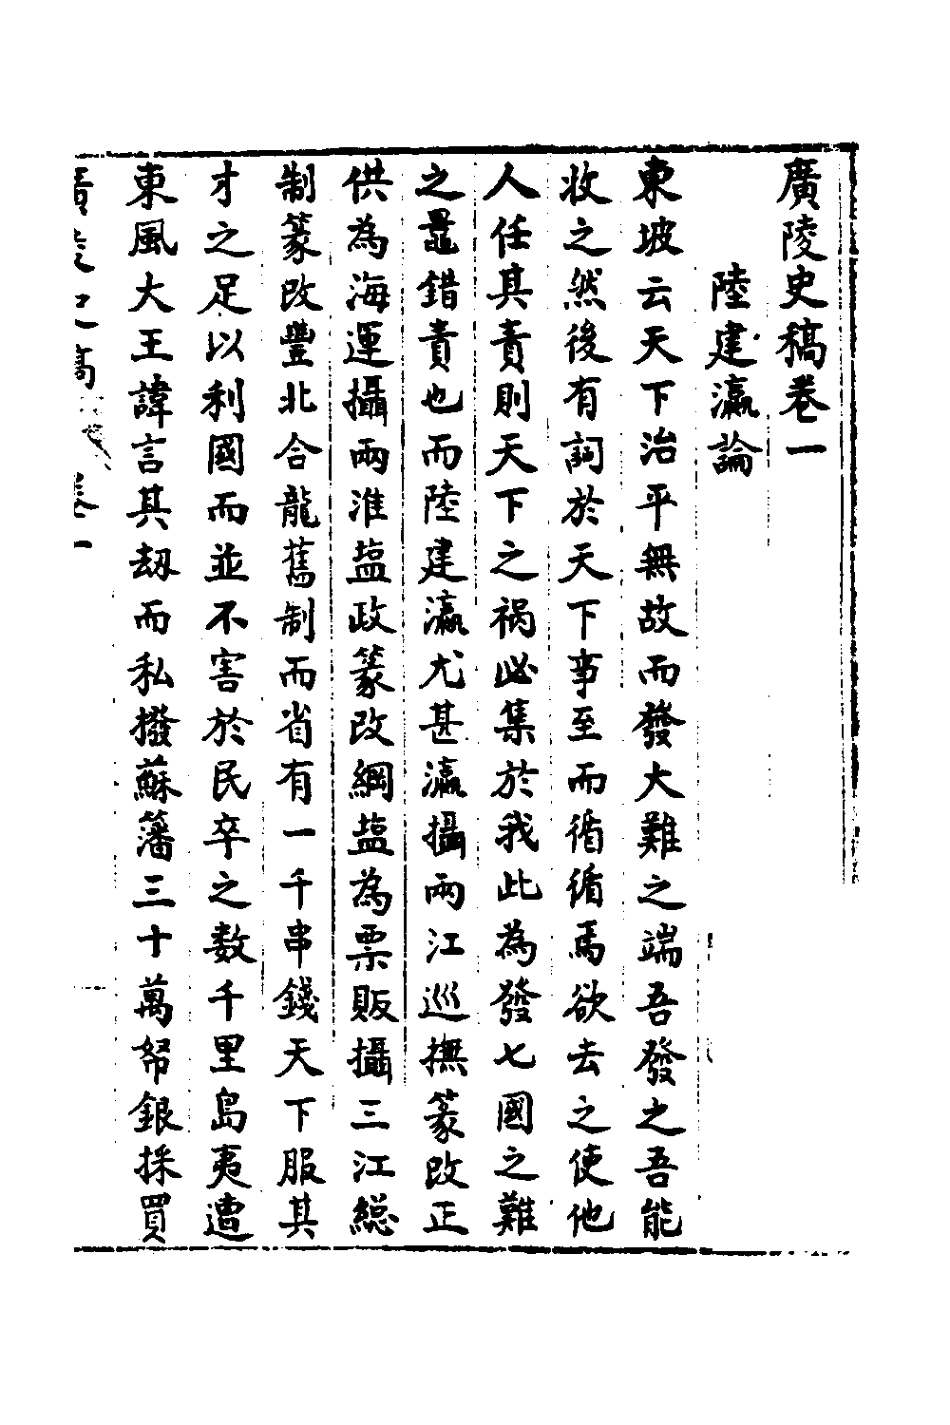 廣陵史稿卷一
陸建瀛論
東坡云天下治平無故而發大難之端吾發之吾能
收之然後有詞於天下事至而循循焉欲去之使他
人任其責則天下之禍必集於我此為發七國之難
之鼂錯責也而陸建瀛尤甚瀛攝兩江巡撫篆改正
供為海運攝兩淮塩政篆改綱塩為票販攝三江総
制篆改豐北合龍舊制而省有一千串錢天下服其
才之足以利國而並不害於民卒之数千里島夷遭
東風大王諱言其刼而私撥蘇藩三十萬帑銀採買
廣陵史稿 卷一